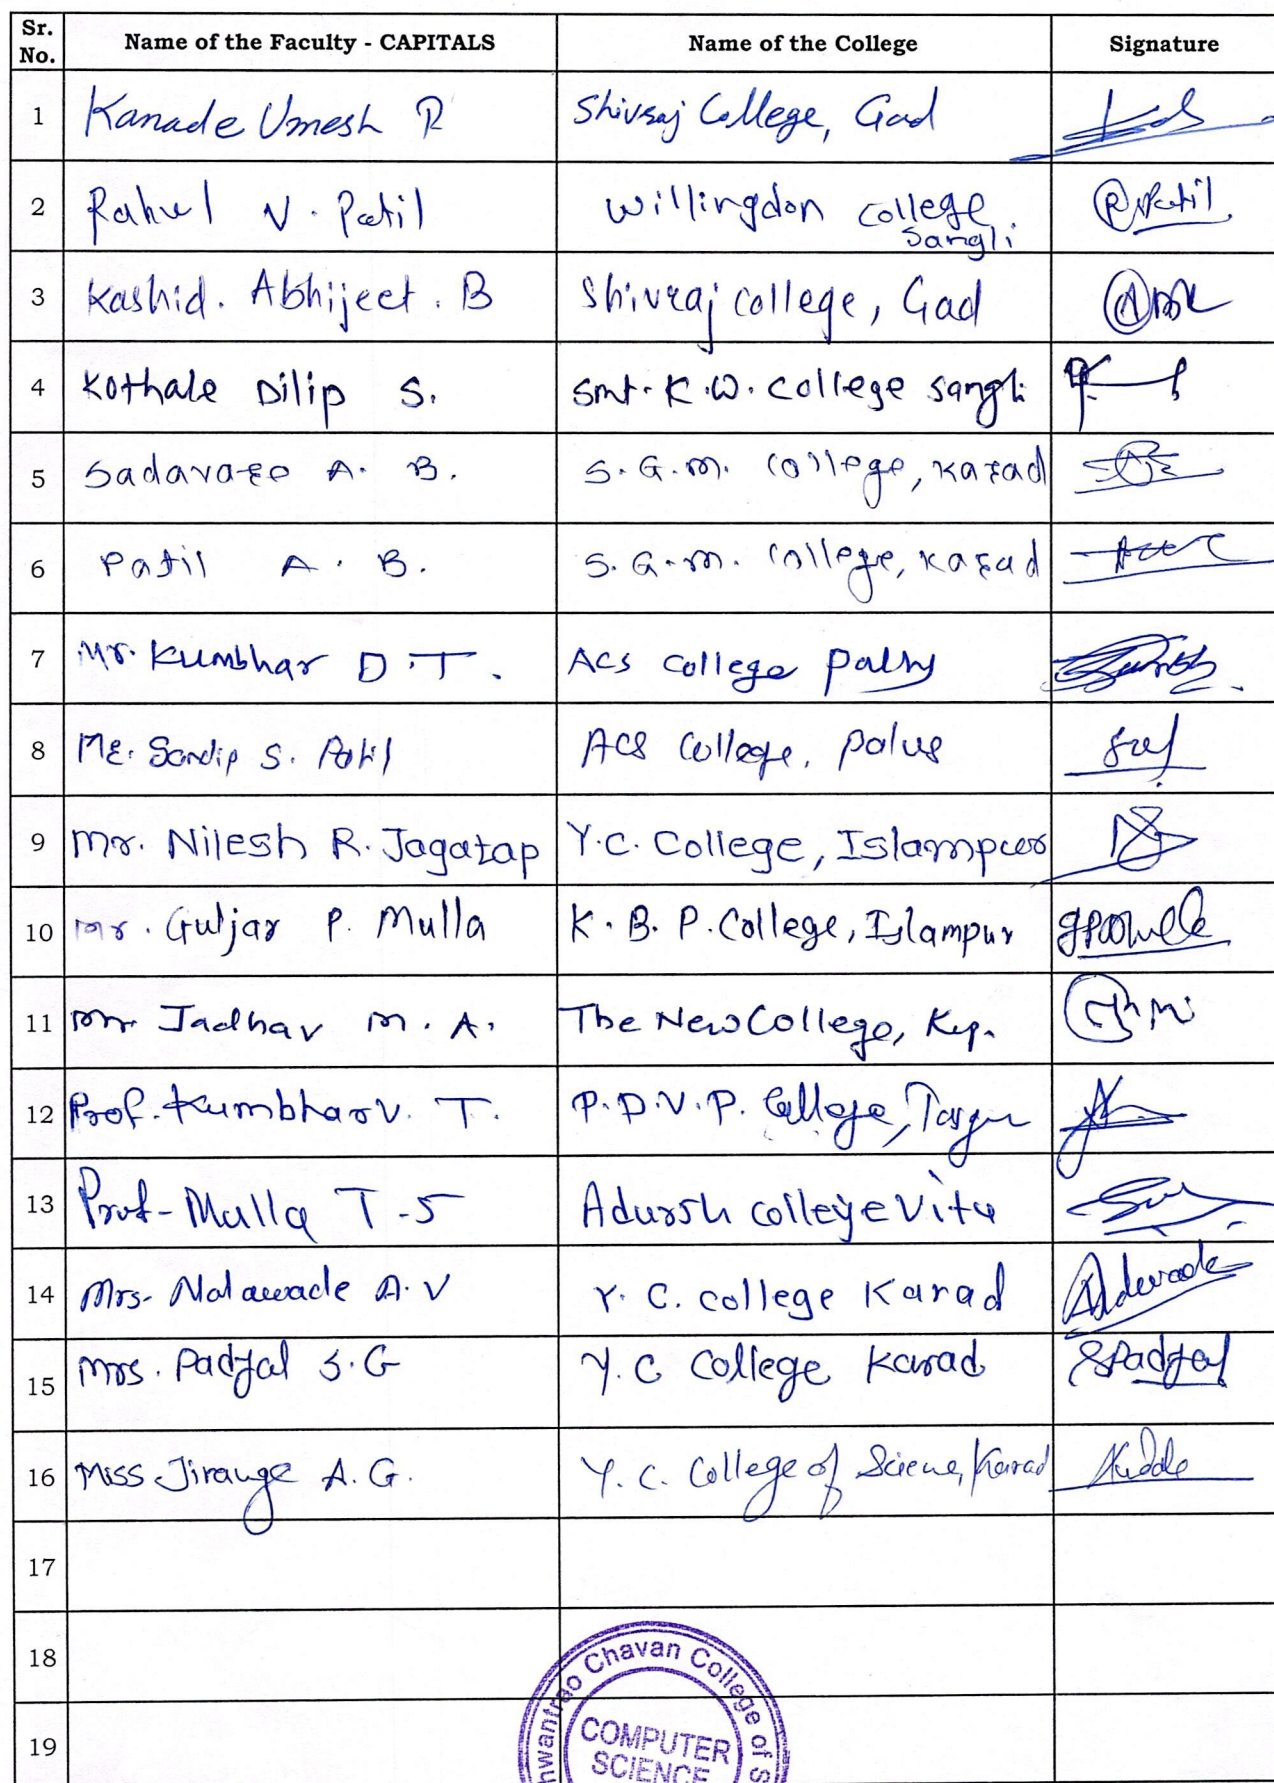 Sr. No. Name of the Faculty - CAPITALS Name of the College Signature
1 Kanade Umesh R Shivraj College, Gad
2 Rahul V. Patil Willingdon College Sangli RPatil
3 Kashid. Abhijeet. B Shivraj college, Gad
4 Kothale Dilip S. Smt. K.W. College Sangli
5 Sadavare A. B. S.G.M. College, Karad
6 Patil A. B. S.G.M. College, Karad
7 Mr. Kumbhar D.T. ACS College Palus
8 Mr. Sandip S. Patil ACS College, Palus
9 Mr. Nilesh R. Jagatap Y.C. College, Islampur
10 Mr. Guljar P. Mulla K.B.P. College, Islampur
11 Mr. Jadhav M. A. The New College, Kop.
12 Prof. Kumbhar V. T. P.D.V.P. College, Tasgaon
13 Prof. Mulla T.S Adarsh college Vita
14 Mrs. Nalawade A.V Y. C. College Karad
15 Mrs. Padyal S.G Y.C College Karad SPadyal
16 Miss Jirange A.G. Y.C. College of Science, Karad
17
18
19
hwantrao Chavan College of S
COMPUTER
SCIENCE